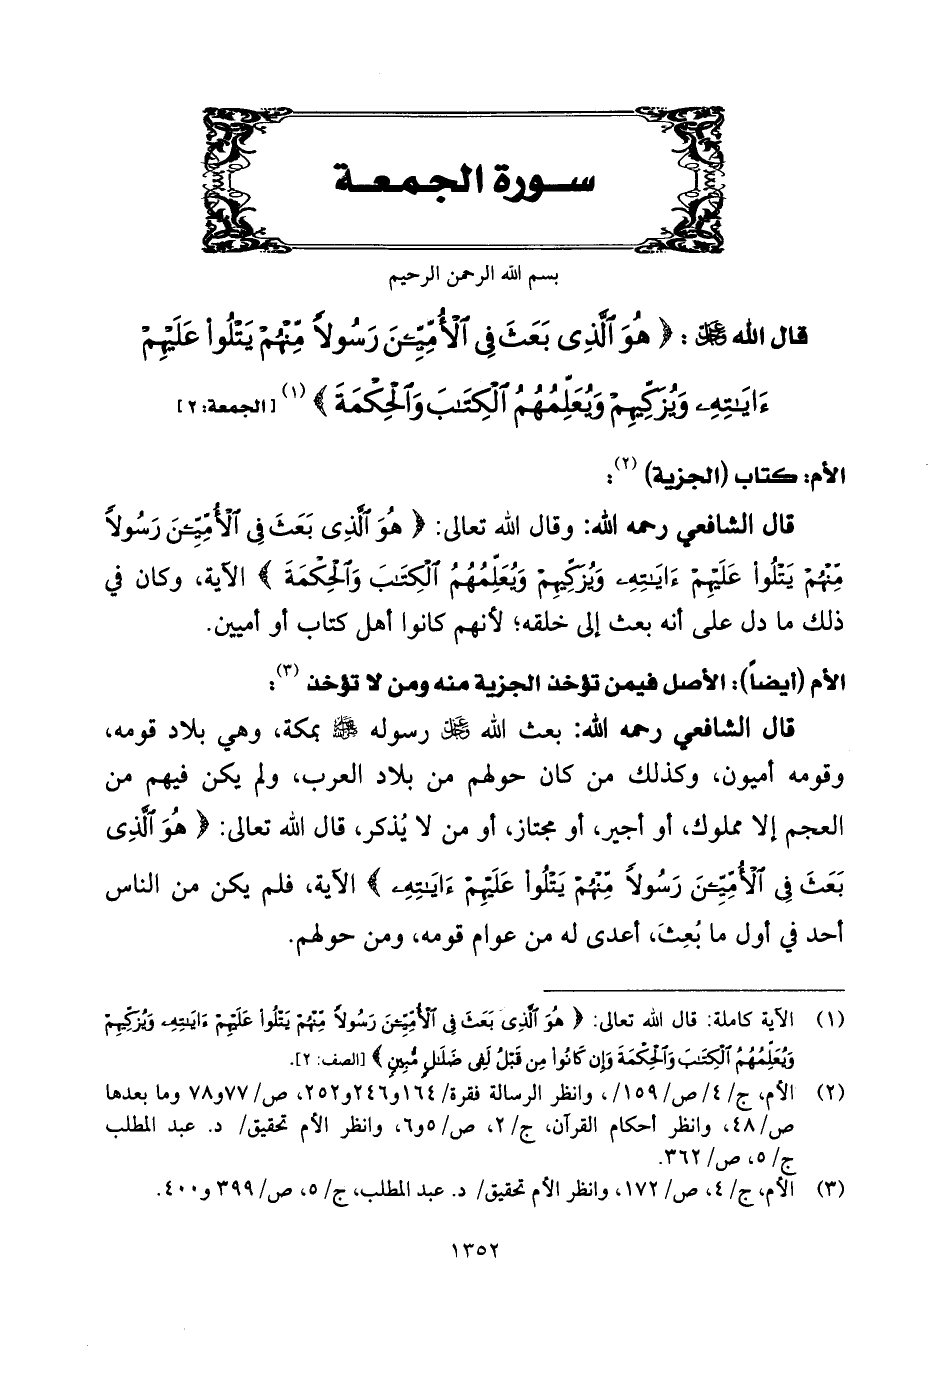 سورة الجمعة
بسم الله الرحمن الرحيم
قال الله ﷻ : ﴿ هُوَ ٱلَّذِى بَعَثَ فِى ٱلْأُمِّيِّـۧنَ رَسُولاً مِّنْهُمْ يَتْلُوا۟ عَلَيْهِمْ
ءَايَـٰتِهِۦ وَيُزَكِّيهِمْ وَيُعَلِّمُهُمُ ٱلْكِتَـٰبَ وَٱلْحِكْمَةَ ﴾ (١) [الجمعة: ٢]
الأم: كتاب (الجزية) (٢):
قال الشافعي رحمه الله: وقال الله تعالى: ﴿ هُوَ ٱلَّذِى بَعَثَ فِى ٱلْأُمِّيِّـۧنَ رَسُولاً
مِّنْهُمْ يَتْلُوا۟ عَلَيْهِمْ ءَايَـٰتِهِۦ وَيُزَكِّيهِمْ وَيُعَلِّمُهُمُ ٱلْكِتَـٰبَ وَٱلْحِكْمَةَ ﴾ الآية، وكان في
ذلك ما دل على أنه بعث إلى خلقه؛ لأنهم كانوا أهل كتاب أو أميين.
الأم (أيضاً): الأصل فيمن تؤخذ الجزية منه ومن لا تؤخذ (٣):
قال الشافعي رحمه الله: بعث الله ﷻ رسوله ﷺ بمكة، وهي بلاد قومه،
وقومه أميون، وكذلك من كان حولهم من بلاد العرب، ولم يكن فيهم من
العجم إلا مملوك، أو أجير، أو مجتاز، أو من لا يُذكر، قال الله تعالى: ﴿ هُوَ ٱلَّذِى
بَعَثَ فِى ٱلْأُمِّيِّـۧنَ رَسُولاً مِّنْهُمْ يَتْلُوا۟ عَلَيْهِمْ ءَايَـٰتِهِۦ ﴾ الآية، فلم يكن من الناس
أحد في أول ما بُعِثَ، أعدى له من عوام قومه، ومن حولهم.
(١) الآية كاملة: قال الله تعالى: ﴿ هُوَ ٱلَّذِى بَعَثَ فِى ٱلْأُمِّيِّـۧنَ رَسُولاً مِّنْهُمْ يَتْلُوا۟ عَلَيْهِمْ ءَايَـٰتِهِۦ وَيُزَكِّيهِمْ
وَيُعَلِّمُهُمُ ٱلْكِتَـٰبَ وَٱلْحِكْمَةَ وَإِن كَانُوا۟ مِن قَبْلُ لَفِى ضَلَـٰلٍ مُّبِينٍ ﴾ [الصف: ٢].
(٢) الأم، ج/ ٤/ ص/ ١٥٩/، وانظر الرسالة فقرة/ ١٦٤و٢٤٦و٢٥٢، ص/ ٧٧و٧٨ وما بعدها
ص/ ٤٨، وانظر أحكام القرآن، ج/ ٢، ص/ ٥و٦، وانظر الأم تحقيق/ د. عبد المطلب
ج/ ٥، ص/ ٣٦٢.
(٣) الأم، ج/ ٤، ص/ ١٧٢، وانظر الأم تحقيق/ د. عبد المطلب، ج/ ٥، ص/ ٣٩٩ و٤٠٠.
١٣٥٢